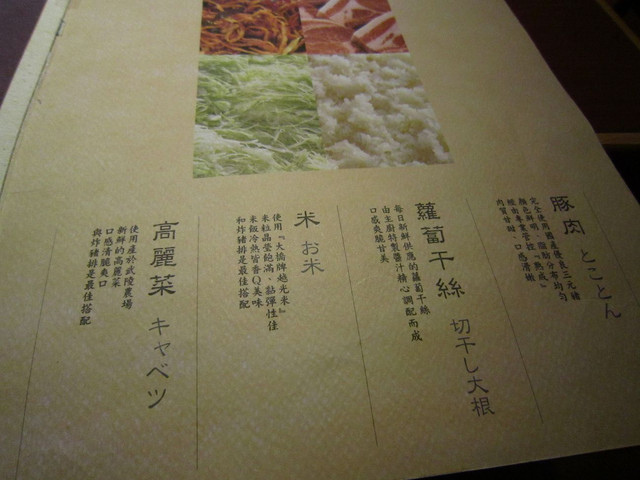 豚肉 とことん
肉質甘甜
蘿蔔干絲 切干し大根
每日新鮮供應的蘿蔔干絲
由主廚特製醬汁精心調配而成
口感爽脆甘美
米 お米
使用『大橋牌越光米』
米粒晶瑩飽滿、黏彈性佳
米飯冷熱皆香Q美味
和炸豬排是最佳搭配
高麗菜 キャベツ
使用產於武陵農場
新鮮的高麗菜
口感清脆爽口
與炸豬排是最佳搭配